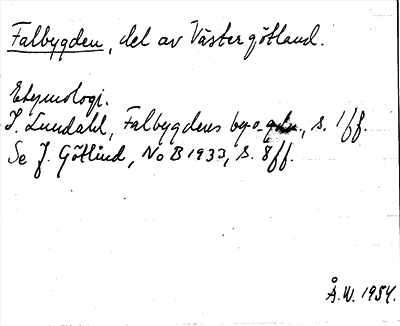 Falbygden, del av Västergötland.
Etymologi.
I. Lundahl, Falbygdens by- o. gdn., s. 1 ff.
Se J. Götlind, NoB 1933, s. 8 ff.
Å.W. 1954.